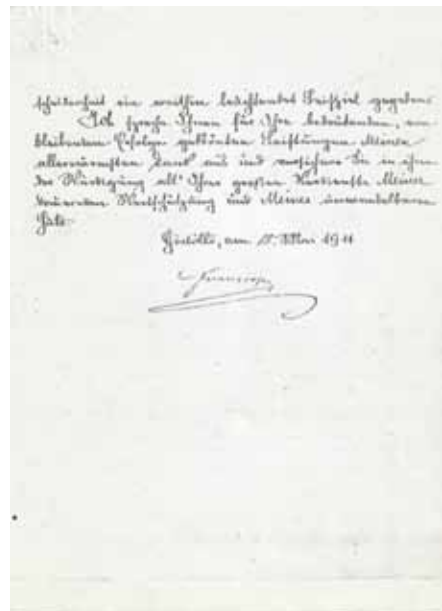 scheidenheit ein weithin leuchtendes Beispiel gegeben.
Ich spreche Ihnen für Ihre bedeutenden, von
bleibenden Erfolgen gekrönten Leistungen Meinen
allerwärmsten Dank aus und versichere Sie in
der Würdigung all' Ihrer großen Verdienste Meiner
dauernden Wertschätzung und Meines unwandelbaren
Gödöllö, am Mai 1911